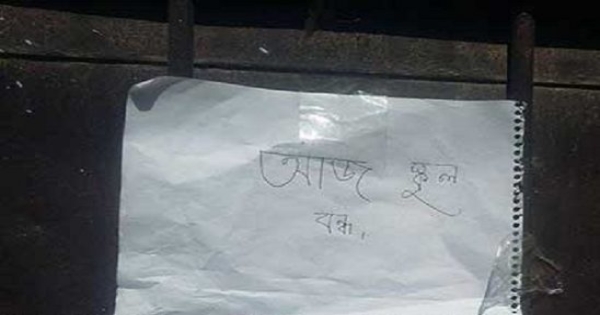 আজ স্কুল
বন্ধ,